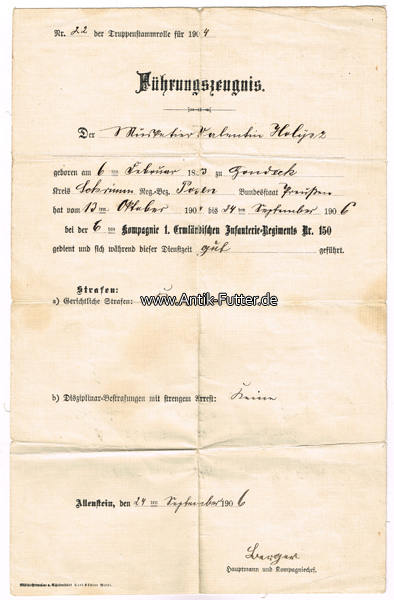 Nr. 22 der Truppenstammrolle für 1904
Führungszeugnis.
Der Musketier Valentin
geboren am 6 ten Februar 1883 zu
Kreis Schrimm Reg.-Bez. Posen Bundesstaat Preußen
hat vom 13 ten Oktober 1904 bis 24 ten September 1906
bei der 6 ten Kompagnie 1. Ermländischen Infanterie-Regiments Nr. 150
gedient und sich während dieser Dienstzeit gut geführt.
Strafen:
a) Gerichtliche Strafen:
www.Antik-Futter.de
b) Disziplinar-Bestrafungen mit strengem Arrest: Keine
Allenstein, den 24 ten September 1906
Berger
Hauptmann und Kompagniechef.